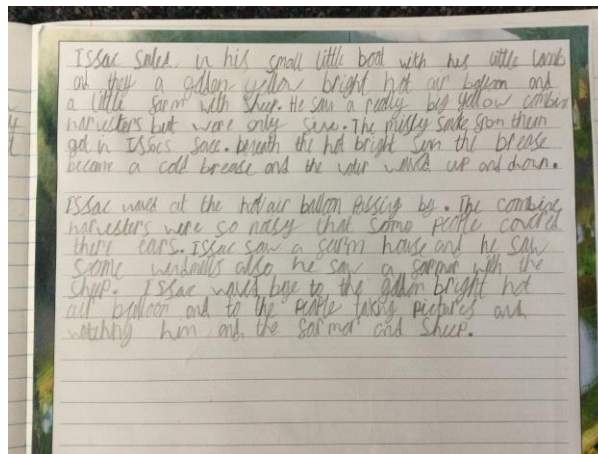 Issac Sailed in his small little boat with his little lamb
and they a golden yellow bright hot air balloon and
a little farm with Sheep. He saw a really big yellow combine
harvesters but were only five. The misty smoke from them
got in Issacs face. beneath the hot bright Sun the brease
became a cold brease and the water waved up and down.
Issac waved at the hot air balloon passing by. The combine
harvesters were so noisy that some people covered
there ears. Issac saw a farm house and he saw
some windmills also he saw a farmar with the
Sheep. Issac waved bye to the golden bright hot
air balloon and to the people taking pictures and
watching him and the farmar and Sheep.